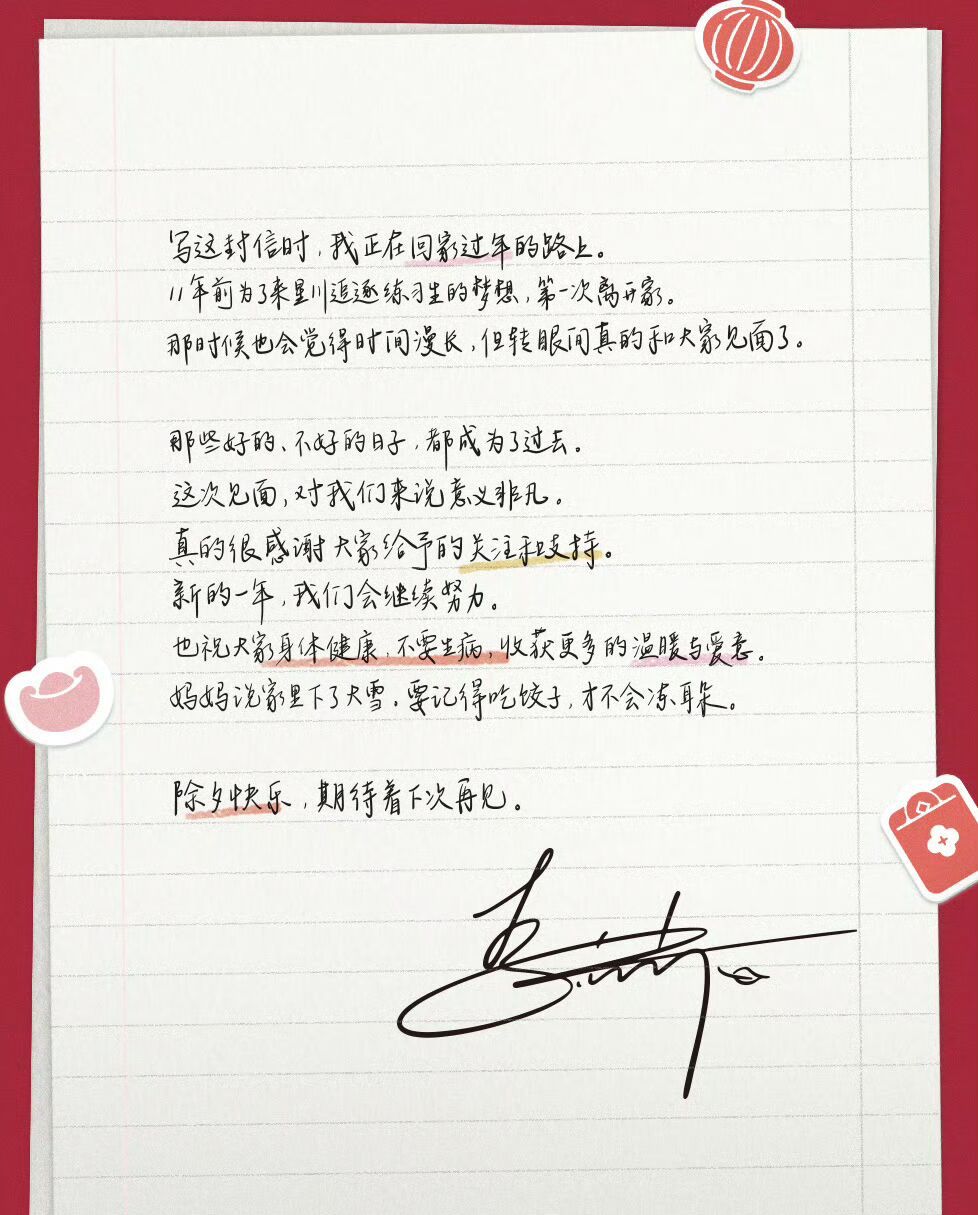 写这封信时,我正在回家过年的路上。
11年前为了来星川追逐练习生的梦想,第一次离开家。
那时候也会觉得时间漫长,但转眼间真的和大家见面了。
那些好的、不好的日子,都成为了过去。
这次见面,对我们来说意义非凡。
真的很感谢大家给予的关注和支持。
新的一年,我们会继续努力。
也祝大家身体健康,不要生病,收获更多的温暖与爱意。
妈妈说家里下了大雪,要记得吃饺子,才不会冻耳朵。
除夕快乐,期待着下次再见。